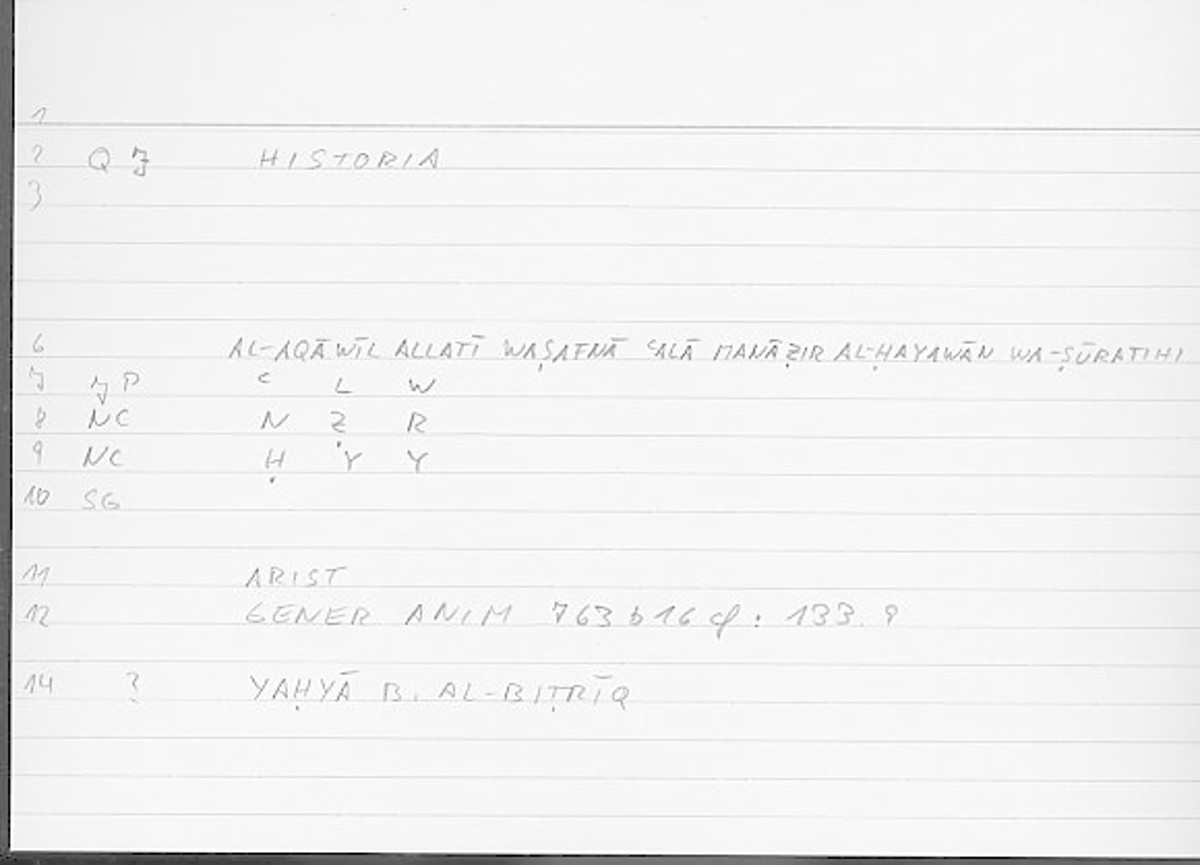 1
2 Q HISTORIA
3
6 AL-AQĀWĪL ALLATĪ WAṢAFNĀ ʿALĀ MANĀẒIR AL-ḤAYAWĀN WA-ṢŪRATIHI
7 P ʿ L W
8 NC N Ẓ R
9 NC Ḥ Y Y
10 SG
11 ARIST
12 GENER ANIM 763 b 16 cf: 133. 9
14 ? YAḤYĀ B. AL-BIṬRĪQ